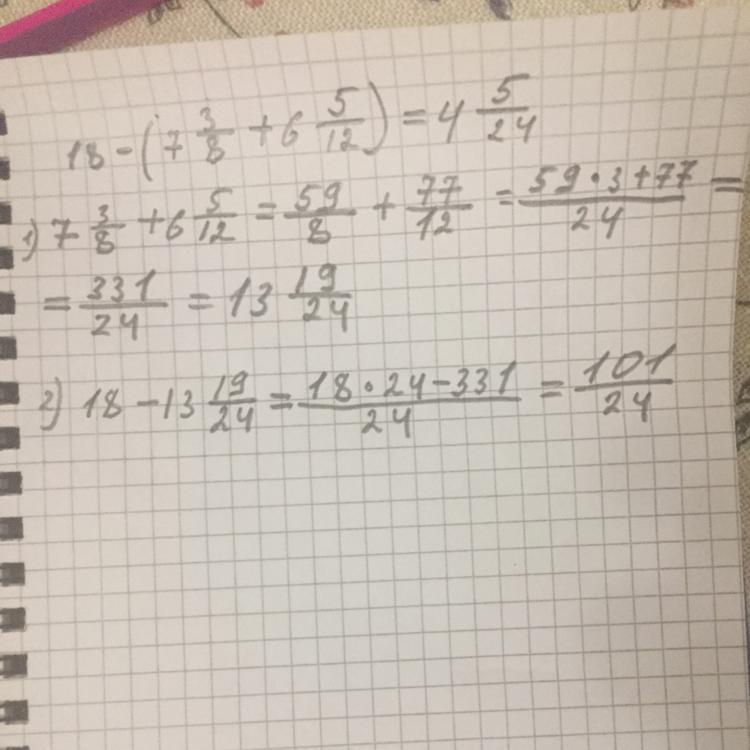 18 - (7 3/8 + 6 5/12) = 4 5/24
1) 7 3/8 + 6 5/12 = 59/8 + 77/12 = (59·3+77)/24 =
= 331/24 = 13 19/24
2) 18 - 13 19/24 = (18·24-331)/24 = 101/24